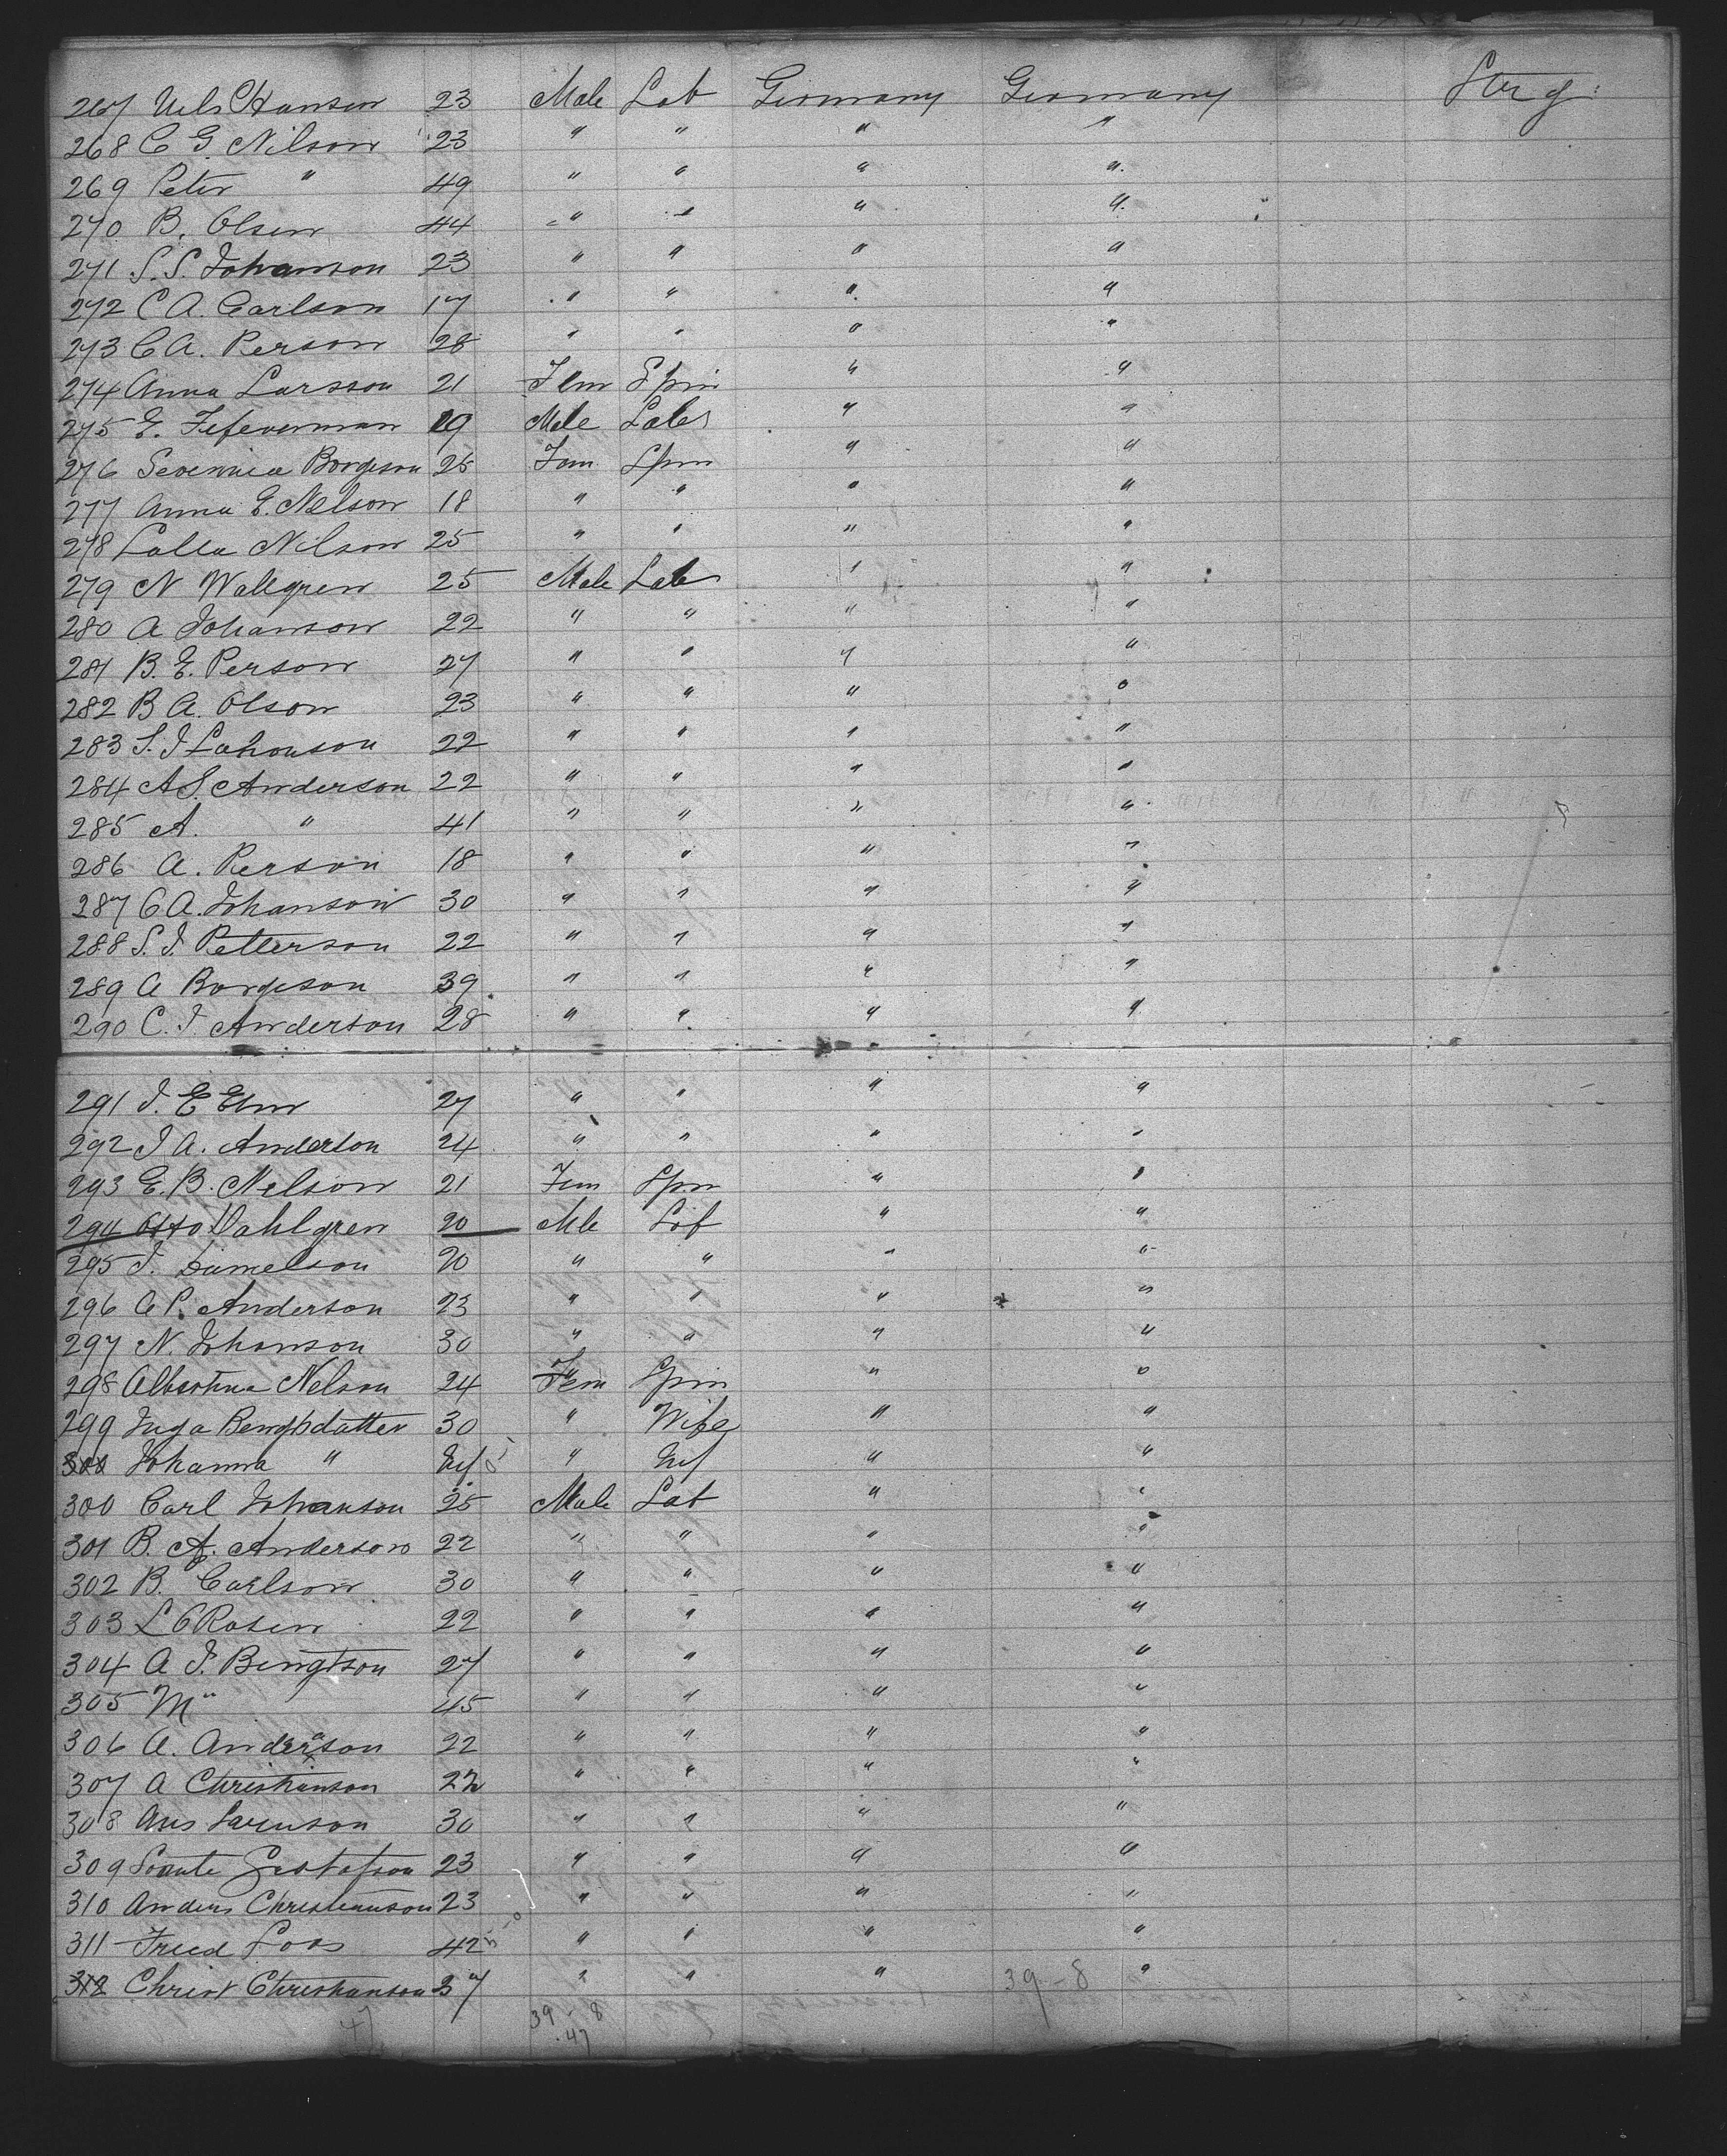 267 Nels Hanson 23 Male Lab Germany Germany Strg
268 C G. Nilson 23 " " " "
269 Peter " 49 " " " "
270 B. Olsen 44 " " " "
271 S. S. Johanson 23 " " " "
272 C A. Carlson 17 " " " "
273 C A. Person 28 " " " "
274 Anna Larsson 21 Fem Spin " "
275 E. 19 Male Labr " "
276 Borgeson 25 Fem Spin " "
277 Anna E. Nelson 18 " " " "
278 Nilson 25 " " " "
279 N Wallgren 25 Male Lab " "
280 A Johanson 22 " " " "
281 B. E. Person 27 " " " "
282 B A. Olson 23 " " " "
283 S. J 22 " " " "
284 A S. Anderson 22 " " " "
285 A. " 41 " " " "
286 A. Person 18 " " " "
287 C A. Johanson 30 " " " "
288 S. J. Petterson 22 " " " "
289 A Borgeson 39 " " " "
290 C. J. Anderson 28 " " " "
291 J. E Elm 27 " " " "
292 J A. Anderson 24 " " " "
293 E. B. Nelson 21 Fem Spin " "
294 Otto Dahlgren 20 Mle Lab " "
295 J. 20 " " " "
296 A P. Anderson 23 " " " "
297 N. Johanson 30 " " " "
298 Nelson 24 Fem Spin " "
299 Inga Bengtsdatter 30 " Wife " "
Johanna " Inf " Inf " "
300 Carl Johanson 25 Male Lab " "
301 B. A. Anderson 22 " " " "
302 B. Carlson 30 " " " "
303 L O Rosen 22 " " " "
304 A J. Bengtson 27 " " " "
305 M " 45 " " " "
306 A. Anderson 22 " " " "
307 A Christianson 22 " " " "
308 30 " " " "
309 Gustafson 23 " " " "
310 Anders Christianson 23 " " " "
311 Fried Loos 42 " " " "
312 Christ Christianson 37 " " " 39-8 "
47 39-8
47